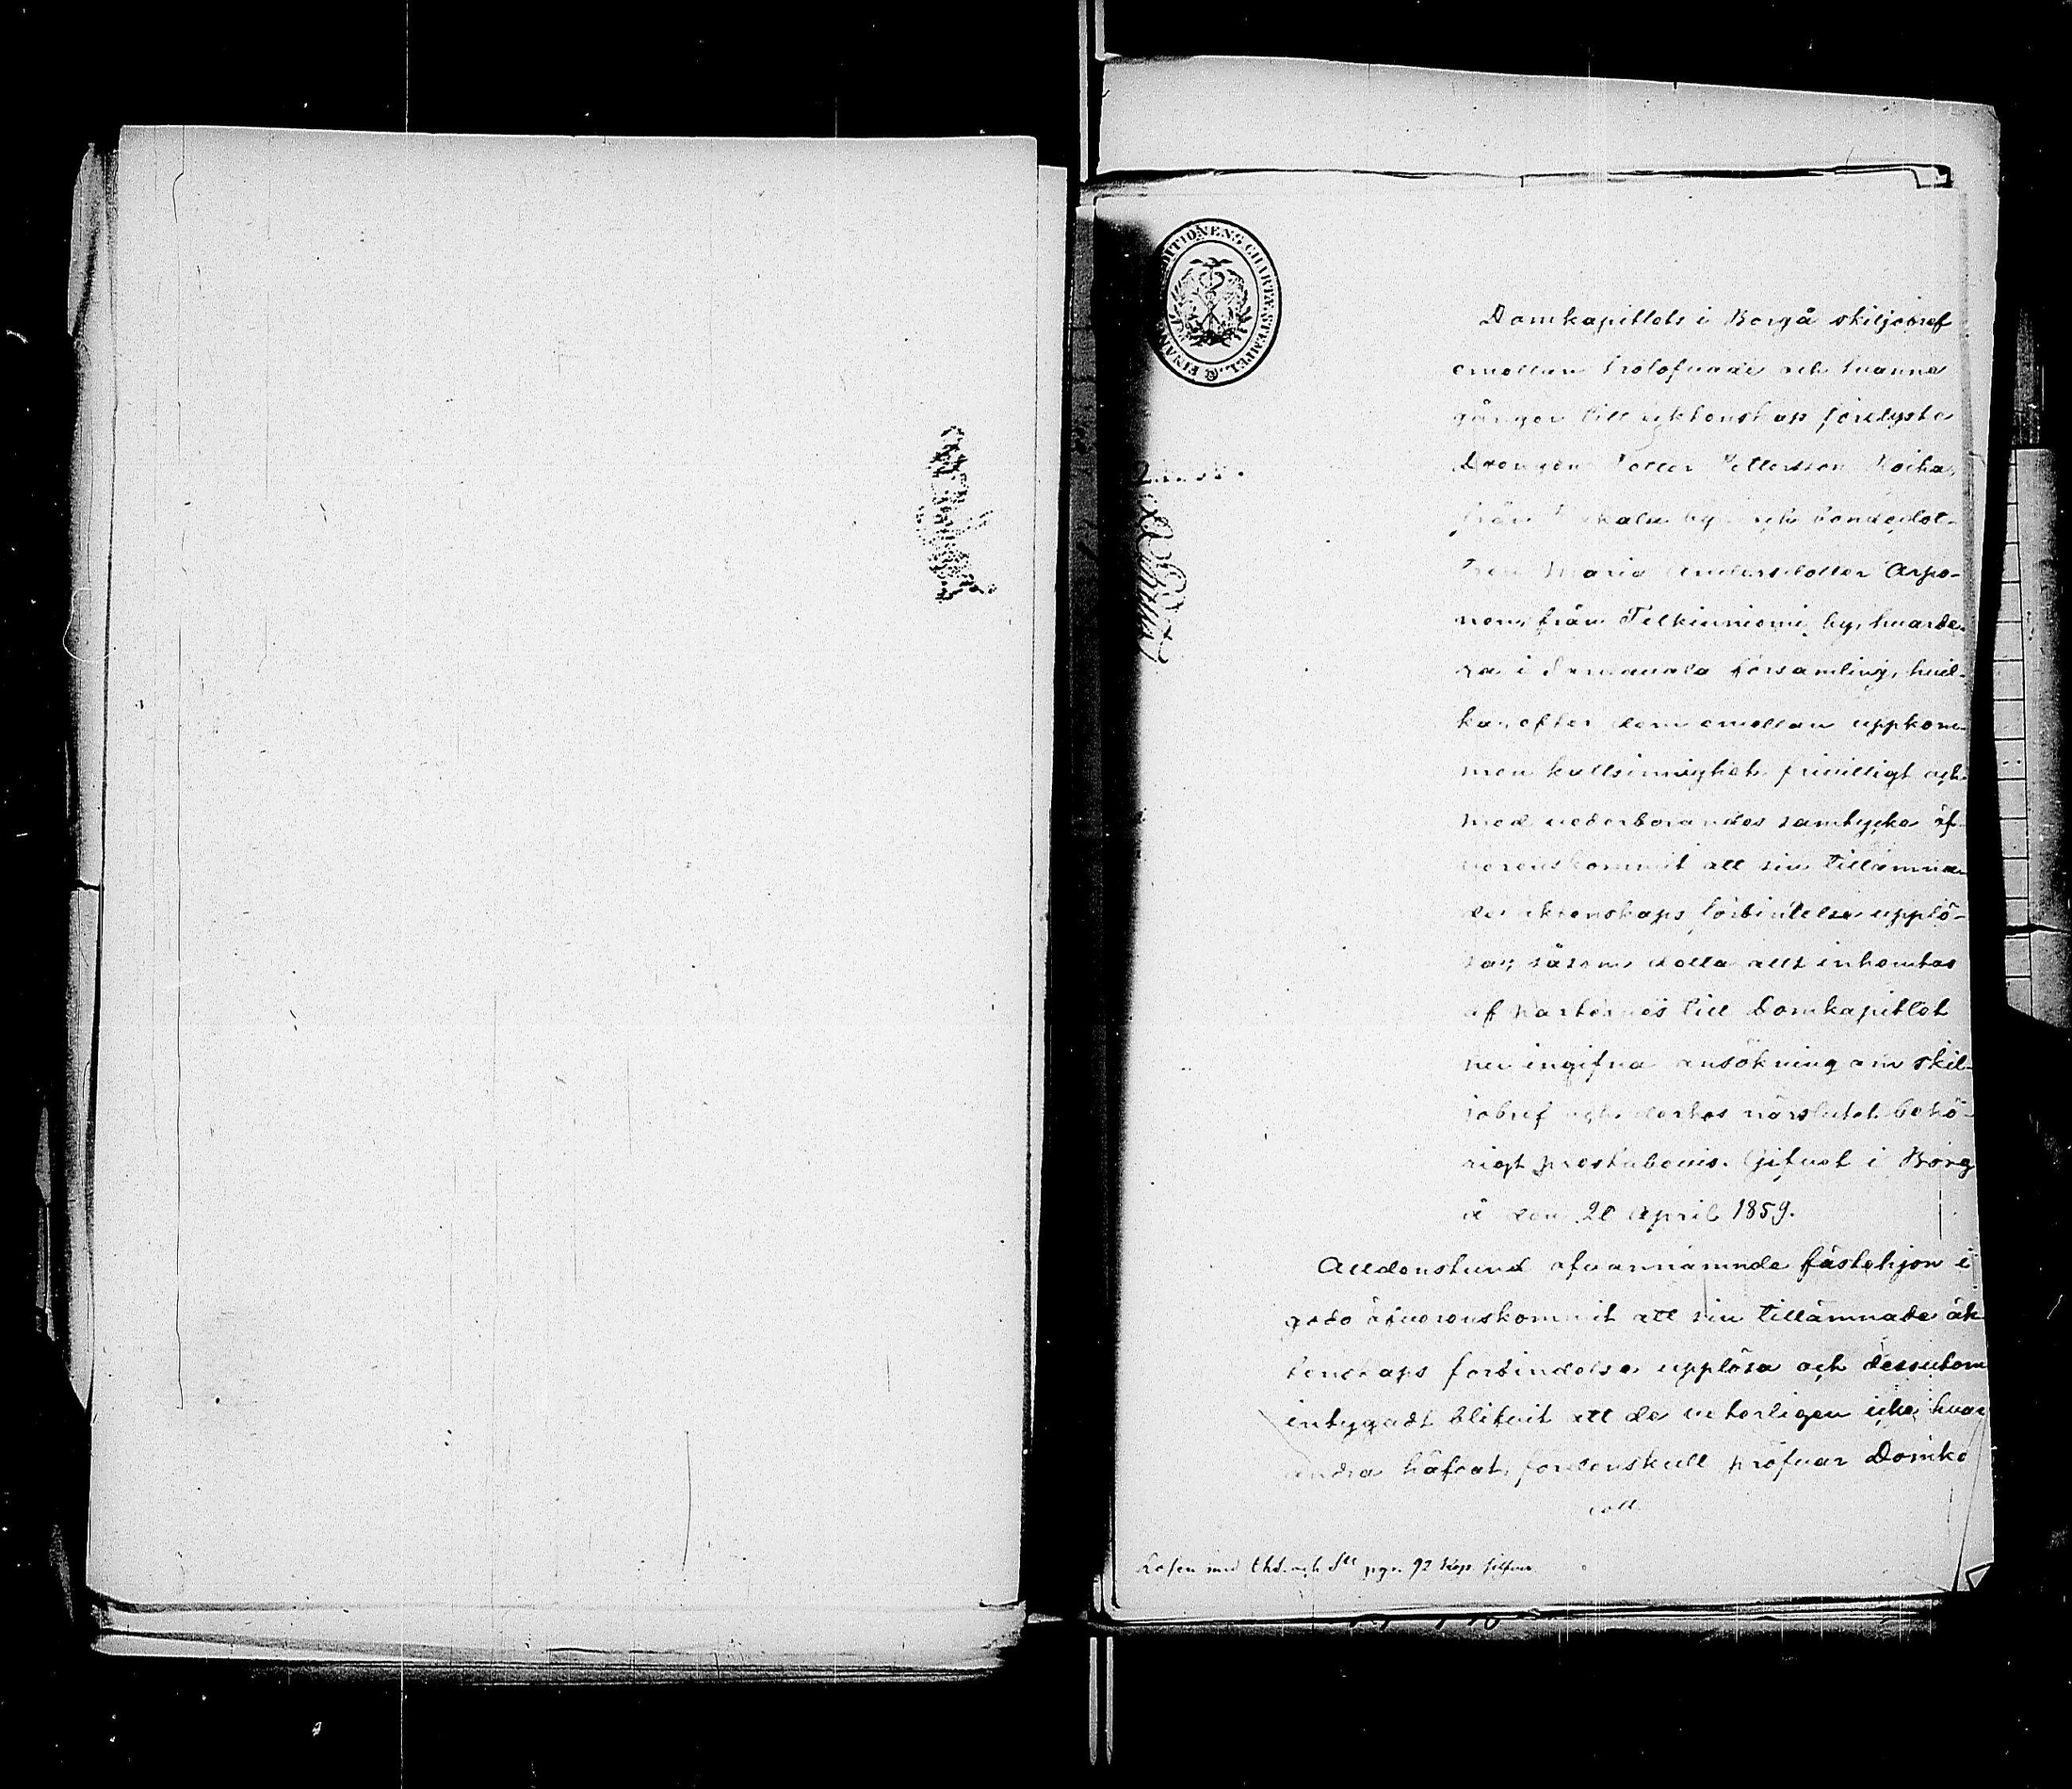 FINANS EXPEDITIONENS CHARTÆ STEMPEL.
Domkapitlets i Borgå skiljobref
emellan trolofvade och tvenne
gånger till äktenskap förelyste
Drengen Petter Pettersson Roiha,
från by och bondedot-
tren Maria Andersdotter Arpo-
nen, från Telkinniemi by, hvarde-
ra i församling, hvil-
ka, efter dem emellan uppkom-
men kallsinnighet frivilligt och
med vederbörandes samtycke öf-
verenskommit att sin tillämna-
de äktenskaps förbindelse upplö-
sa, såsom detta allt inhemtas
af parternes till Domkapitlet
nu ingifna ansökning om skil-
jobref och derhos närslutet behö-
rigt prestabevis. Gifvet i Borg
å den 20 April 1859.
Alldenstund ofvannämnde fästehjon i
godo öfverenskommit att sin tillämnade äk
tenskaps förbindelse upplösa och dessutom
intygadt blifvit att de veterligen icke hvar
andra häfdat, fördenskull pröfvar Domka
Lösen med Chd. och Stt pgr. 92 Kop. silfver